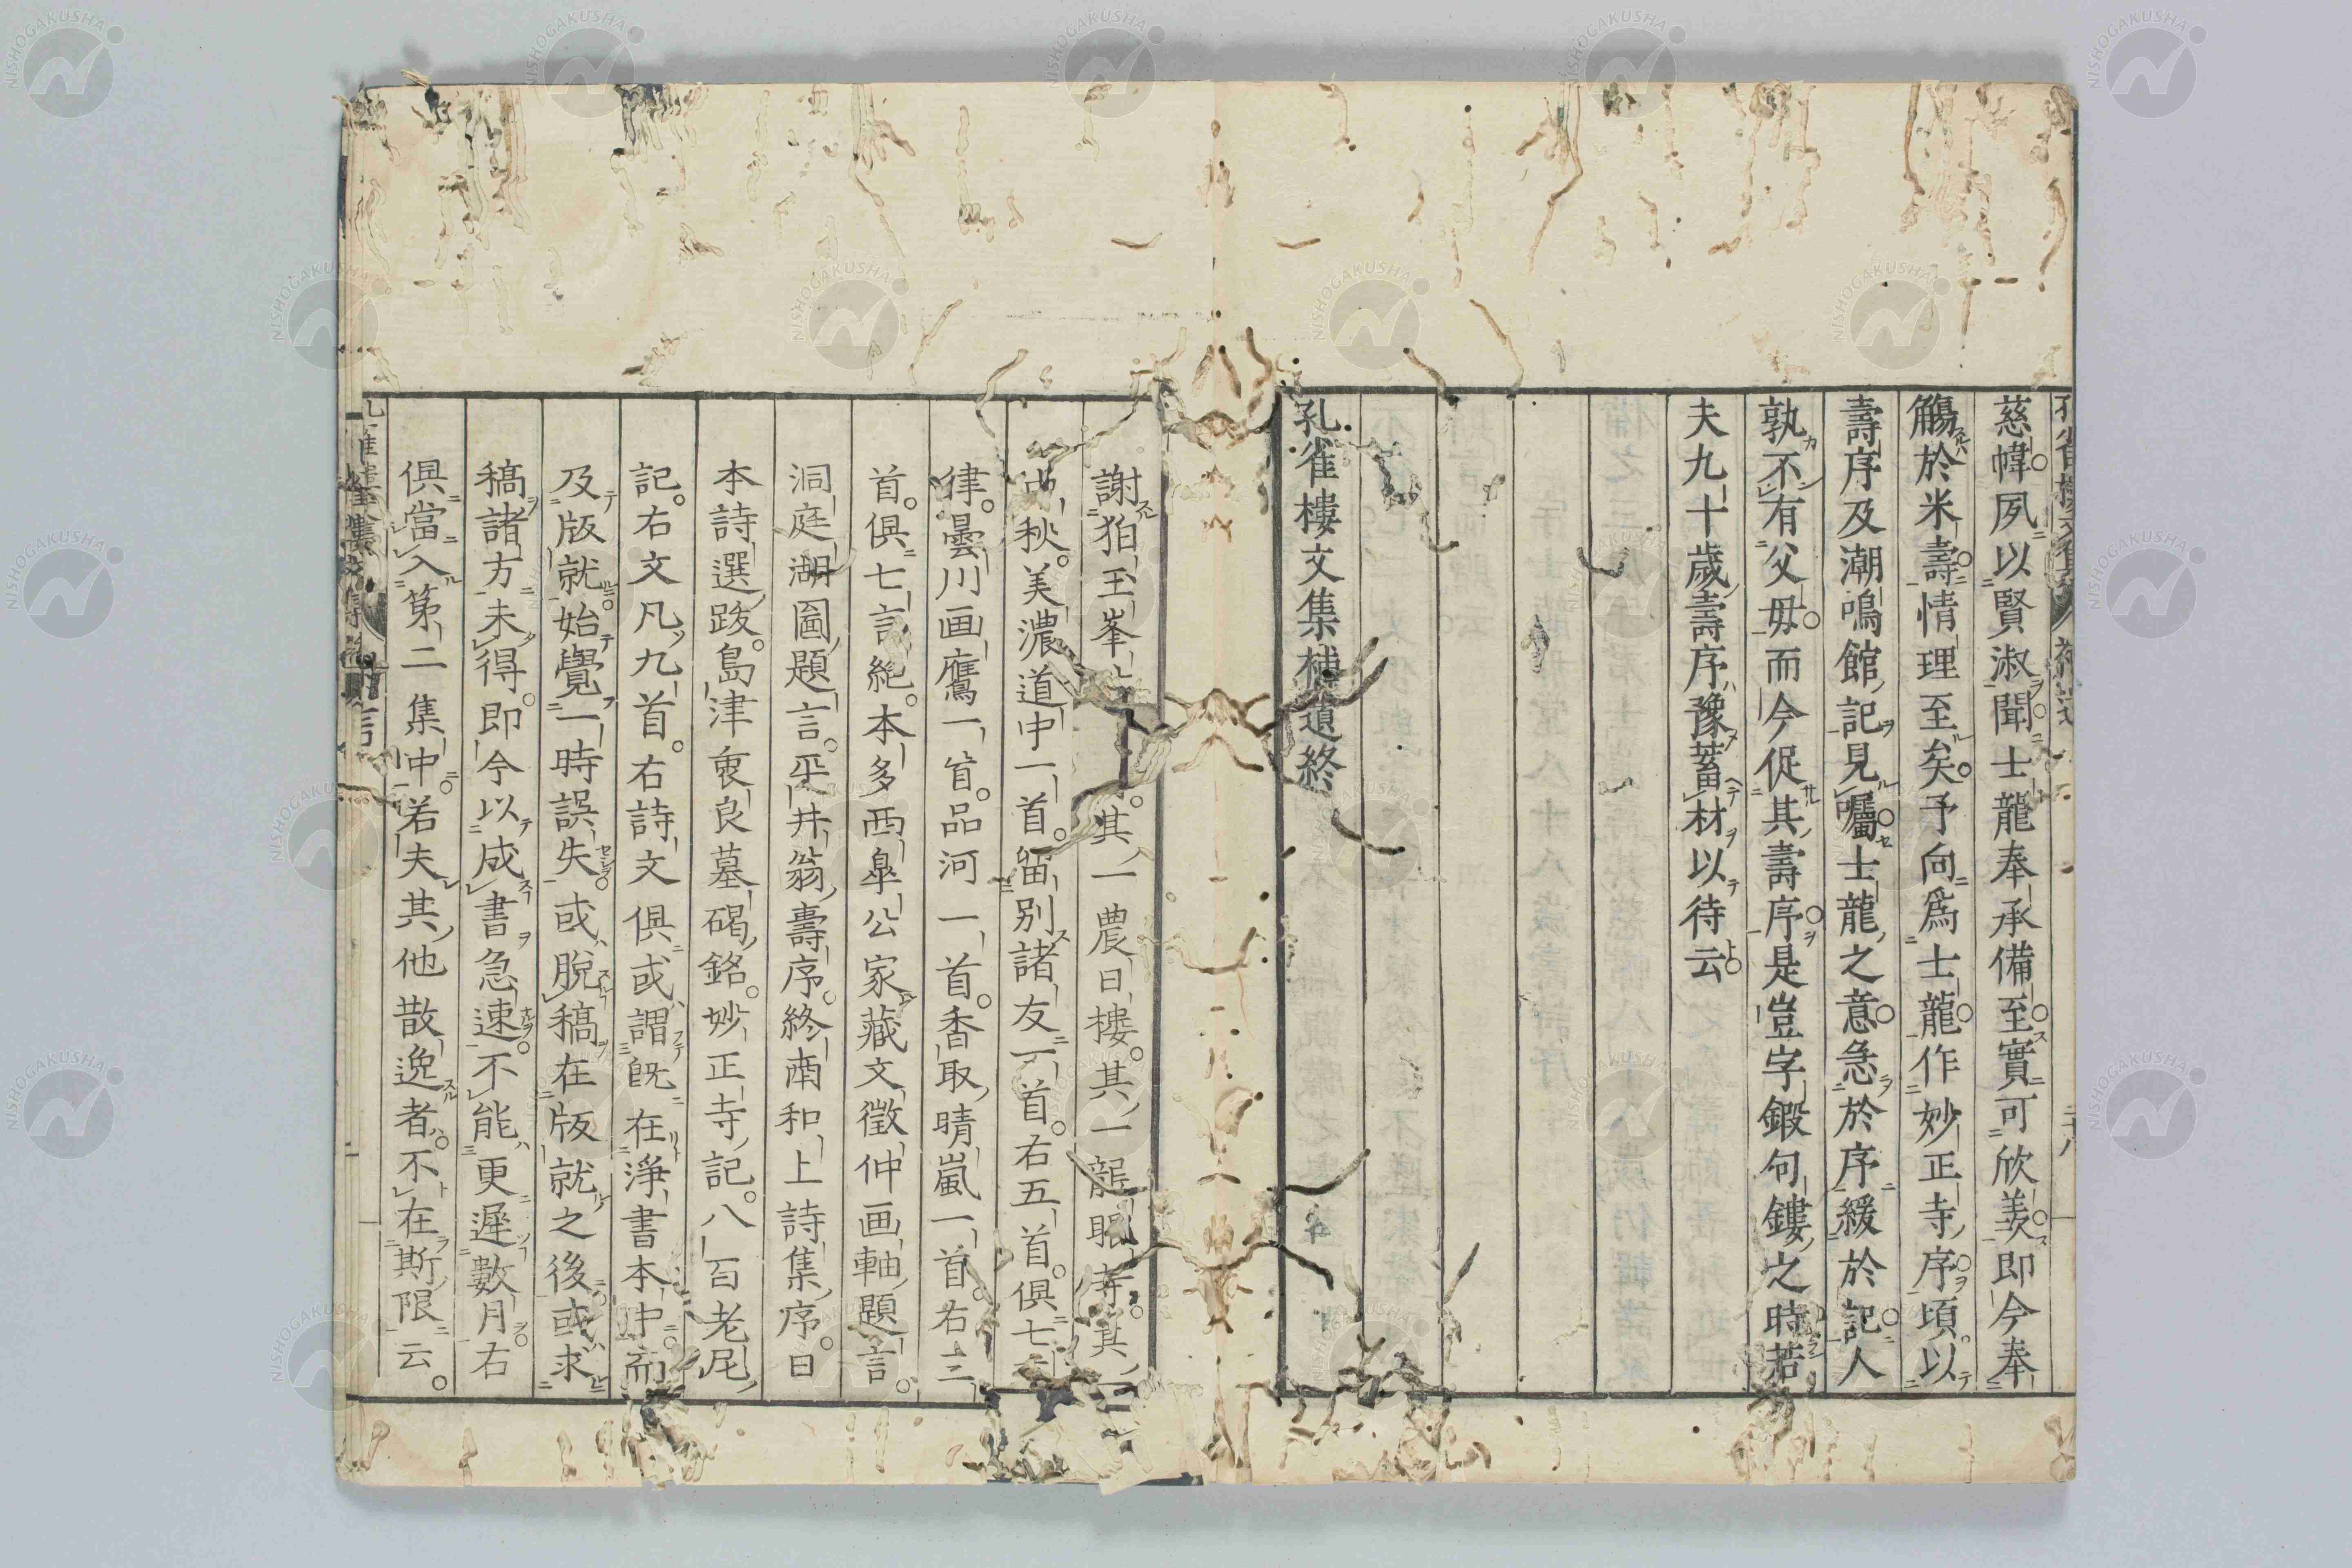 慈幃夙以賢淑聞士龍奉承備至實可欣羨即今奉
觴於米壽情理至矣予向爲士龍作妙正寺序頃以
壽序及潮鳴館記見囑士龍之意急於序緩於記人
孰不有父毋而今促其壽序是豈字鍛句鏤之時若
夫九十歲壽序豫蓄材以待云
孔雀樓文集補遺終
謝狛玉峯其一農日樓其一龍眠寺其
秋美濃道中一首留別諸友一首右五首俱七
律曇川画鷹一首品河一首香取晴嵐一首右三
首俱七言絶本多西皐公家藏文徵仲画軸題言
洞庭湖圖題言平井翁壽序終南和上詩集序日
本詩選跋島津衷良墓碣銘妙正寺記八百老尼
記右文凡九首右詩文俱或謂既在淨書本中而
及版就始覺一時誤失或脫稿在版就之後或求
稿諸方未得即今以成書急速不能更遲數月右
俱當入第二集中若夫其他散逸者不在斯限云